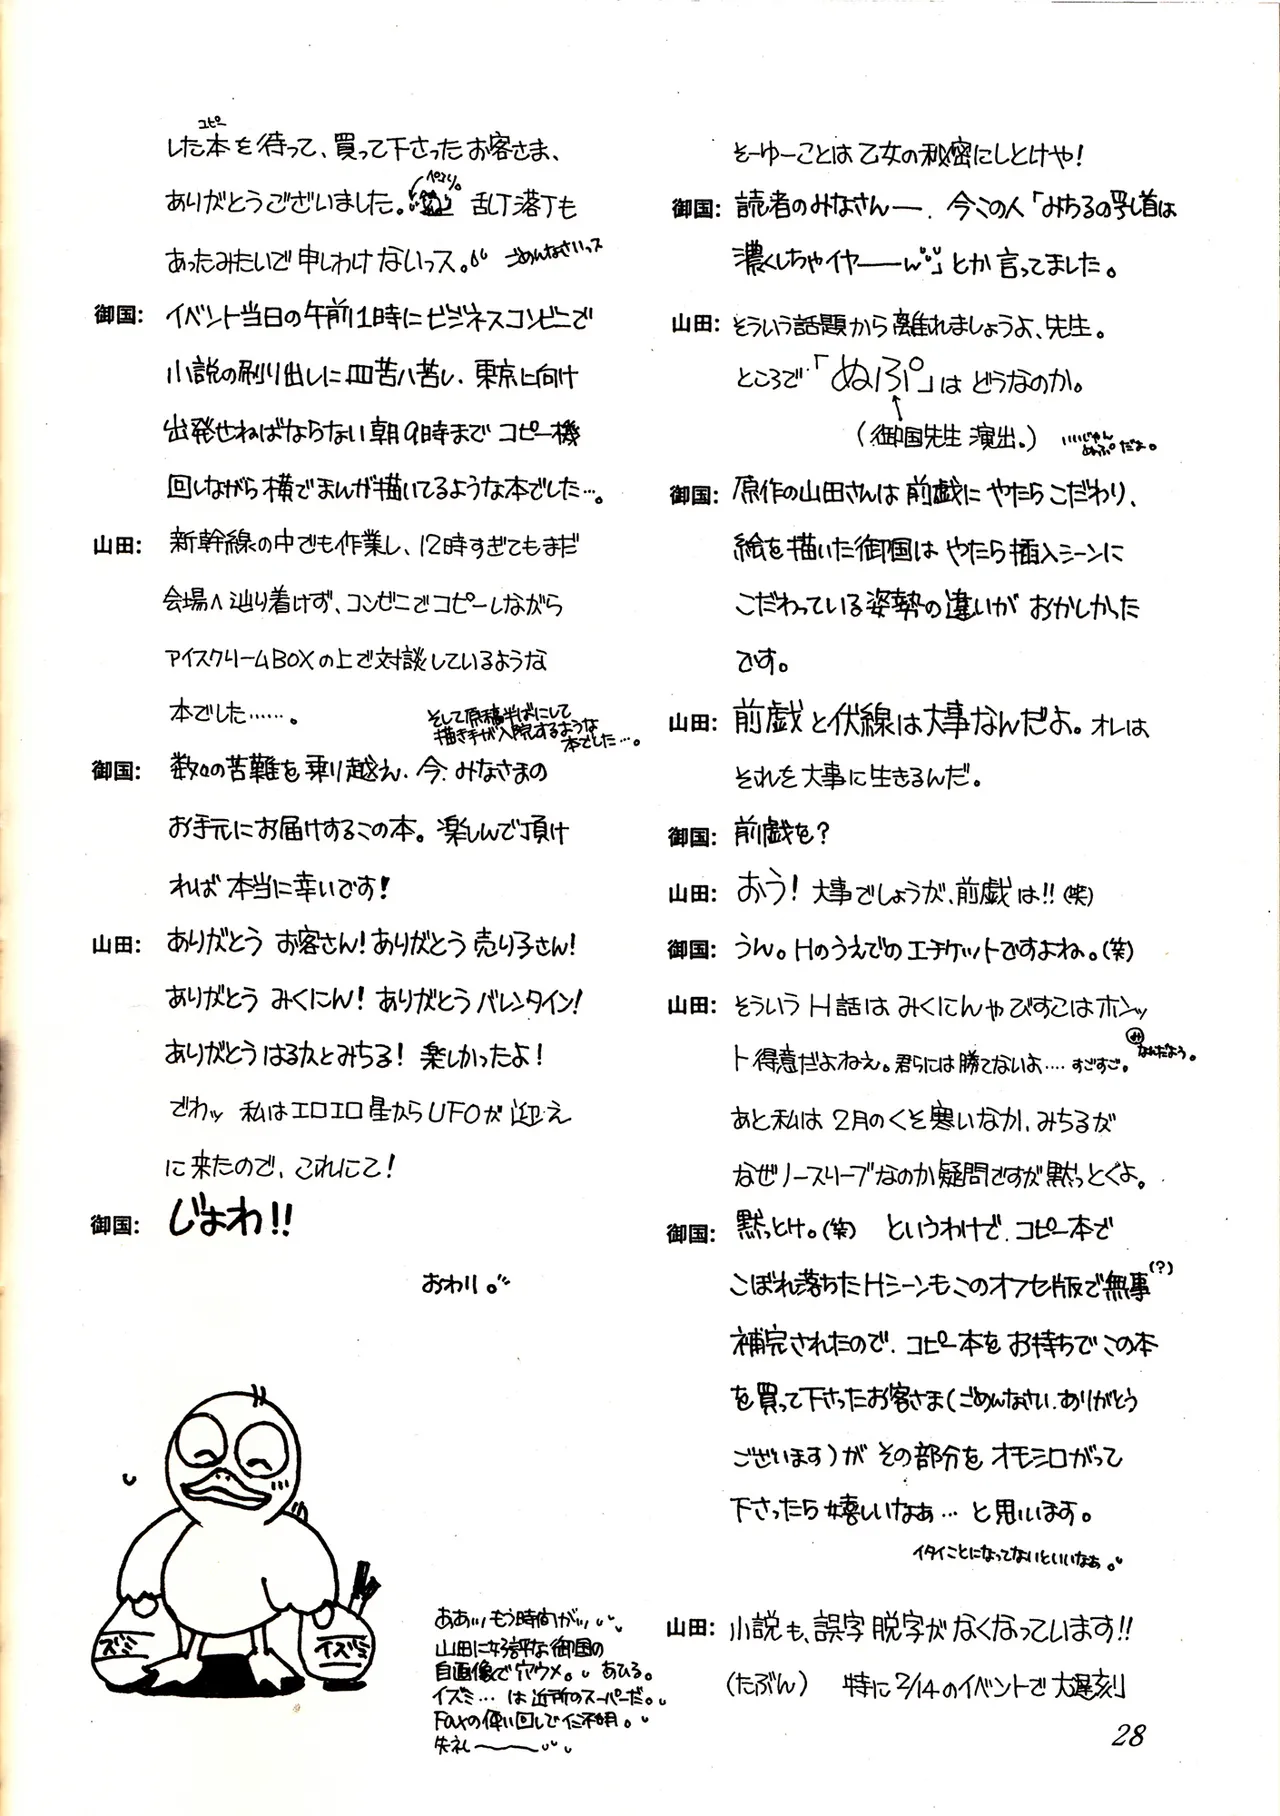 そーゆーことは乙女の秘密にしとけや!
御国: 読者のみなさんー、今この人「みちるの乳首は
濃くしちゃイヤーーん」とか言ってました。
山田: そういう話題から離れましょうよ、先生。
ところで「ぬぷ」はどうなのか。
(御国先生 演出。)
いいじゃん
ぬぷだよ。
御国: 原作の山田さんは前戯にやたらこだわり、
絵を描いた御国はやたら挿入シーンに
こだわっている姿勢の違いがおかしかった
です。
山田: 前戯と伏線は大事なんだよ。オレは
それを大事に生きるんだ。
御国: 前戯を?
山田: おう! 大事でしょうが、前戯は!!(笑)
御国: うん。Hのうえでのエチケットですよね。(笑)
山田: そういうH話はみくにんやびすこはホンッ
ト得意だよねえ。君らには勝てないよ…. すごすご。
み なんだよう。
あと私は2月のくそ寒いなか、みちるが
なぜノースリーブなのか疑問ですが黙っとくよ。
御国: 黙っとけ。(笑) というわけで、コピー本で
こぼれ落ちたHシーンもこのオフセ版で無事(?)
補完されたので、コピー本をお持ちでこの本
を買って下さったお客さま(ごめんなさい、ありがとう
ございます)がその部分をオモシロがって
下さったら嬉しいなぁ…と思います。
イタイことになってないといいなぁ。
山田: 小説も、誤字脱字がなくなっています!!
(たぶん) 特に2/14のイベントで大遅刻
コピー
した本を待って、買って下さったお客さま、
ありがとうございました。 ペコリ。 乱丁落丁も
あったみたいで申しわけないっス。 ごめんなさいっス
御国: イベント当日の午前1時にビジネスコンビニで
小説の刷り出しに四苦八苦し、東京に向け
出発せねばならない朝9時までコピー機
回しながら横でまんが描いてるような本でした…。
山田: 新幹線の中でも作業し、12時すぎてもまだ
会場へ辿り着けず、コンビニでコピーしながら
アイスクリームBOXの上で対談しているような
本でした……。
そして原稿半ばにして
描き手が入院するような
本でした…。
御国: 数々の苦難を乗り越え、今、みなさまの
お手元にお届けするこの本。楽しんで頂け
れば本当に幸いです!
山田: ありがとうお客さん!ありがとう売り子さん!
ありがとうみくにん!ありがとうバレンタイン!
ありがとうはる九とみちる! 楽しかったよ!
でわッ 私はエロエロ星からUFOが迎え
に来たので、これにて!
御国: じょわ!!
おわり。
イズミ
イズミ
ああッもう時間がッ
山田に好評な御国の
自画像で穴ウメ。 あひる。
イズミ…は近所のスーパーだ。
Faxの使い回しで仁不明。
失礼〜
28